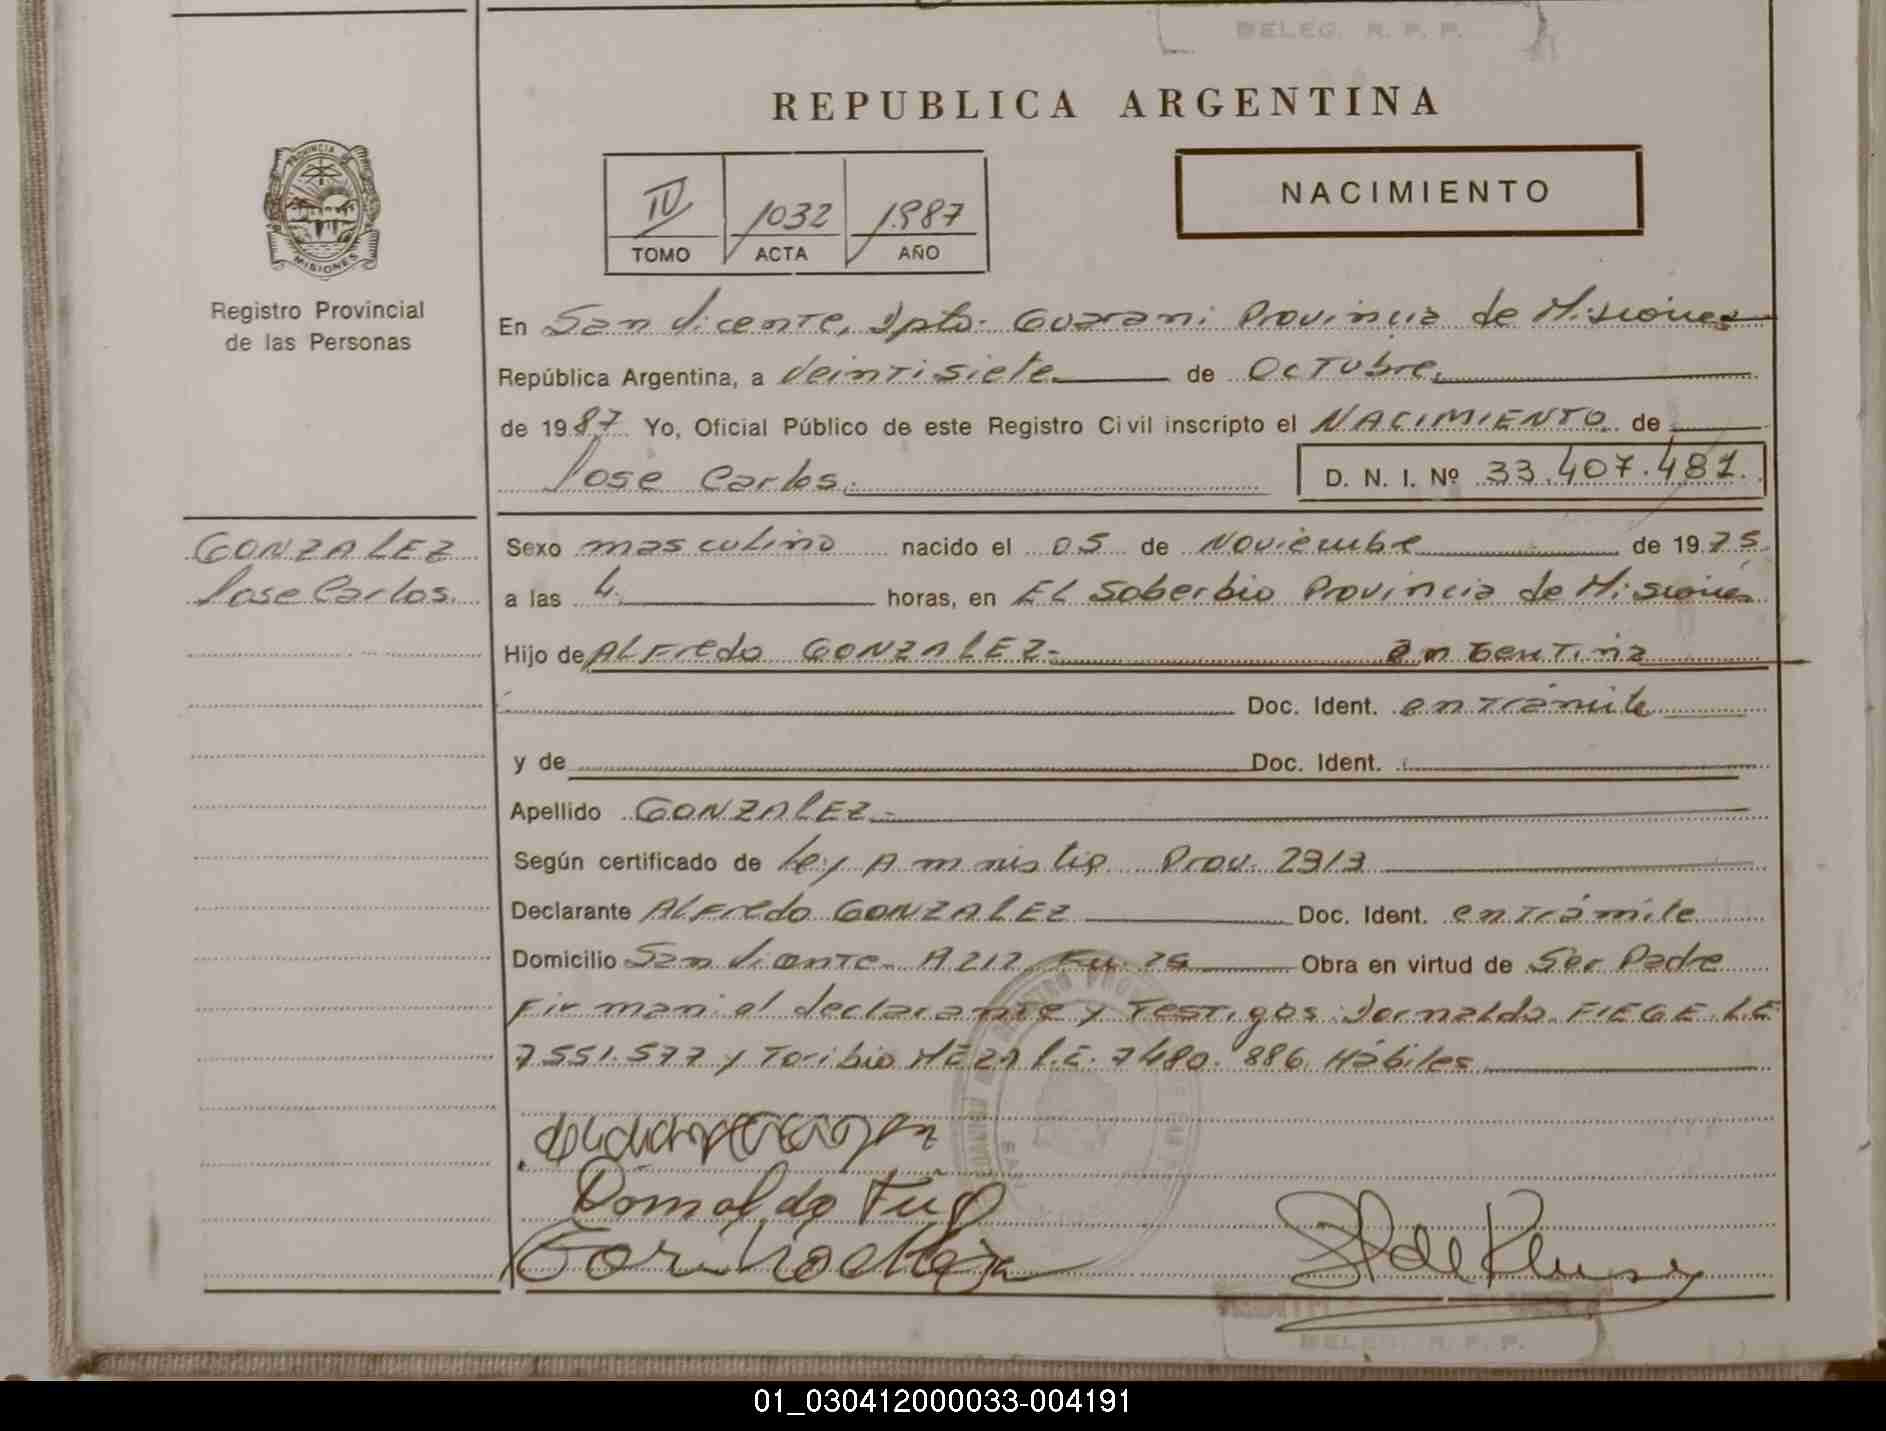 DELEG. R. P. P.
REPUBLICA ARGENTINA
PROVINCIA DE
MISIONES
Registro Provincial
de las Personas
IV 1032 1987
TOMO ACTA AÑO
NACIMIENTO
En San Vicente, Dpto. Guarani Provincia de Misiones
República Argentina, a Veintisiete de Octubre
de 1987 Yo, Oficial Público de este Registro Civil inscripto el NACIMIENTO de
Jose Carlos. D. N. I. Nº 33.407.481.
GONZALEZ
Jose Carlos.
Sexo masculino nacido el 05 de Noviembre de 1975
a las 4. horas, en EL Soberbio Provincia de Misiones
Hijo de ALFredo GONZALEZ- argentina
Doc. Ident. en trámite
y de Doc. Ident.
Apellido GONZALEZ-
Según certificado de Ley Amnistia Prov. 2313
Declarante ALFredo GONZALEZ Doc. Ident. en trámite
Domicilio San Vicente A 212 Obra en virtud de Ser Padre
Firman el declarante y Testigos FIEGE L.E
7551.577 y Toribio MEZA L.E. 7480.886 Hábiles
DELEG. R. P. P.
01_030412000033-004191